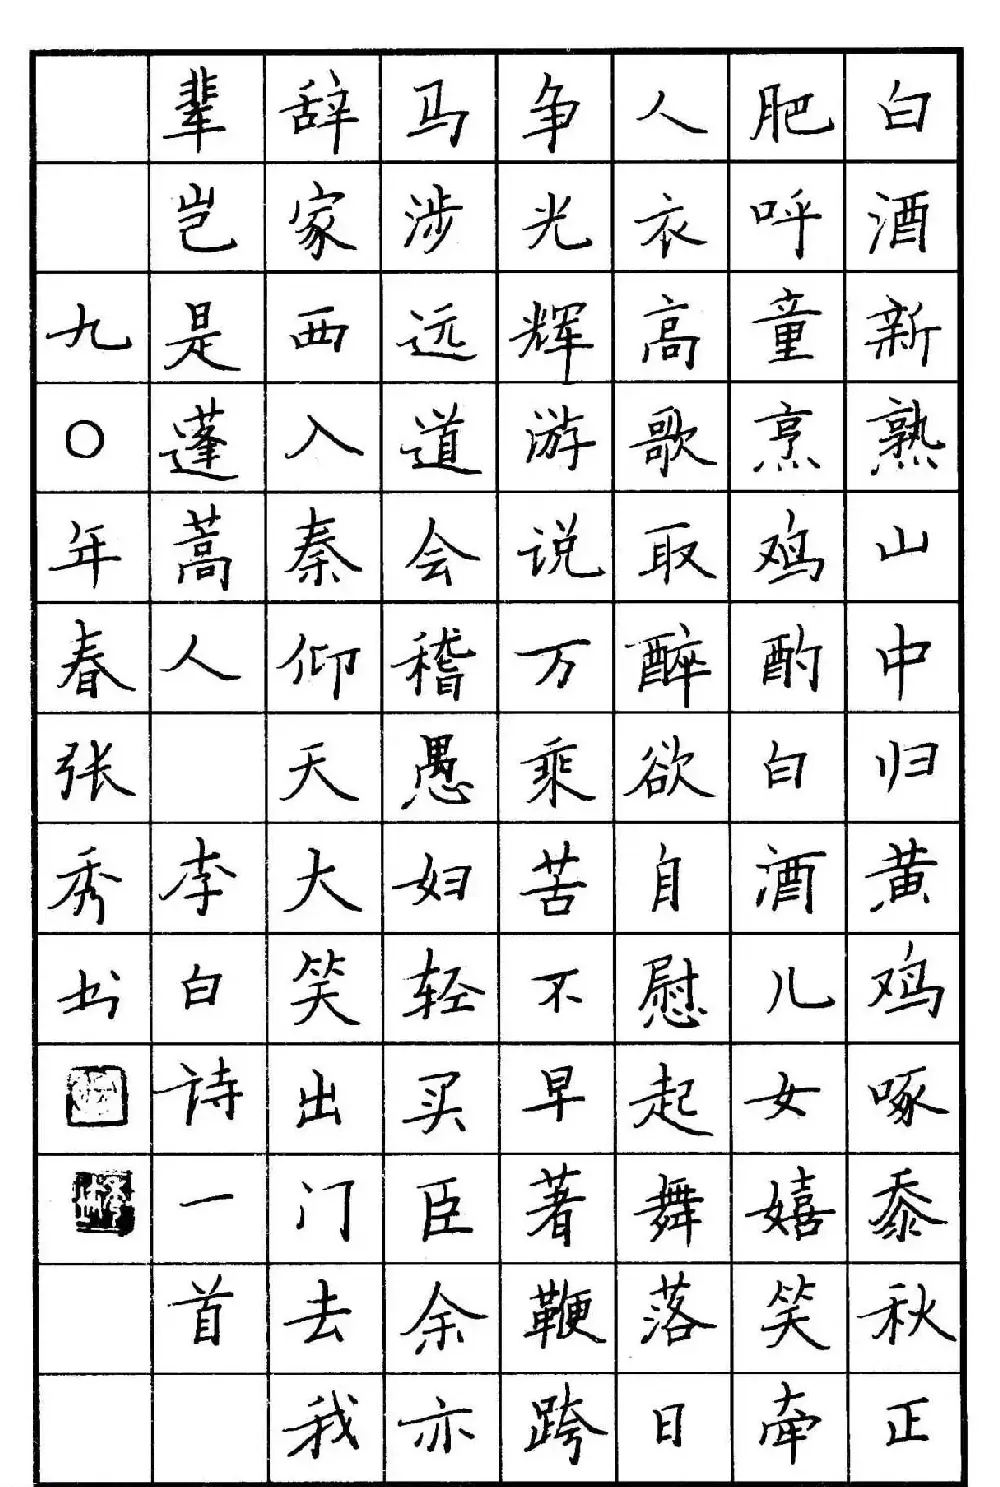 白酒新熟山中归黄鸡啄黍秋正
肥呼童烹鸡酌白酒儿女嬉笑牵
人衣高歌取醉欲自慰起舞落日
争光辉游说万乘苦不早著鞭跨
马涉远道会稽愚妇轻买臣余亦
辞家西入秦仰天大笑出门去我
辈岂是蓬蒿人 李白诗一首
九〇年春张秀书